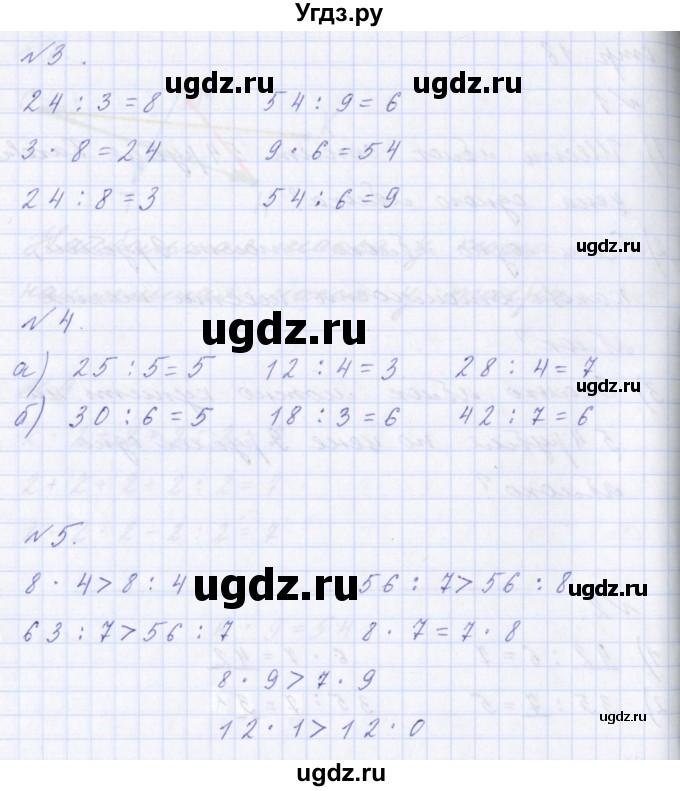 Угдз.ру
№3.
24 : 3 = 8    54 : 9 = 6
3 · 8 = 24    9 · 6 = 54
24 : 8 = 3    54 : 6 = 9
№4.
а) 25 : 5 = 5    12 : 4 = 3    28 : 4 = 7
б) 30 : 6 = 5    18 : 3 = 6    42 : 7 = 6
№5.
8 · 4 > 8 : 4    56 : 7 > 56 : 8
63 : 7 > 56 : 7    8 · 7 = 7 · 8
8 · 9 > 7 · 9
12 · 1 > 12 · 0
ugdz.ru
ugdz.ru
ugdz.ru
ugdz.ru
ugdz.ru
ugdz.ru
ugdz.ru
ugdz.ru
ugdz.ru